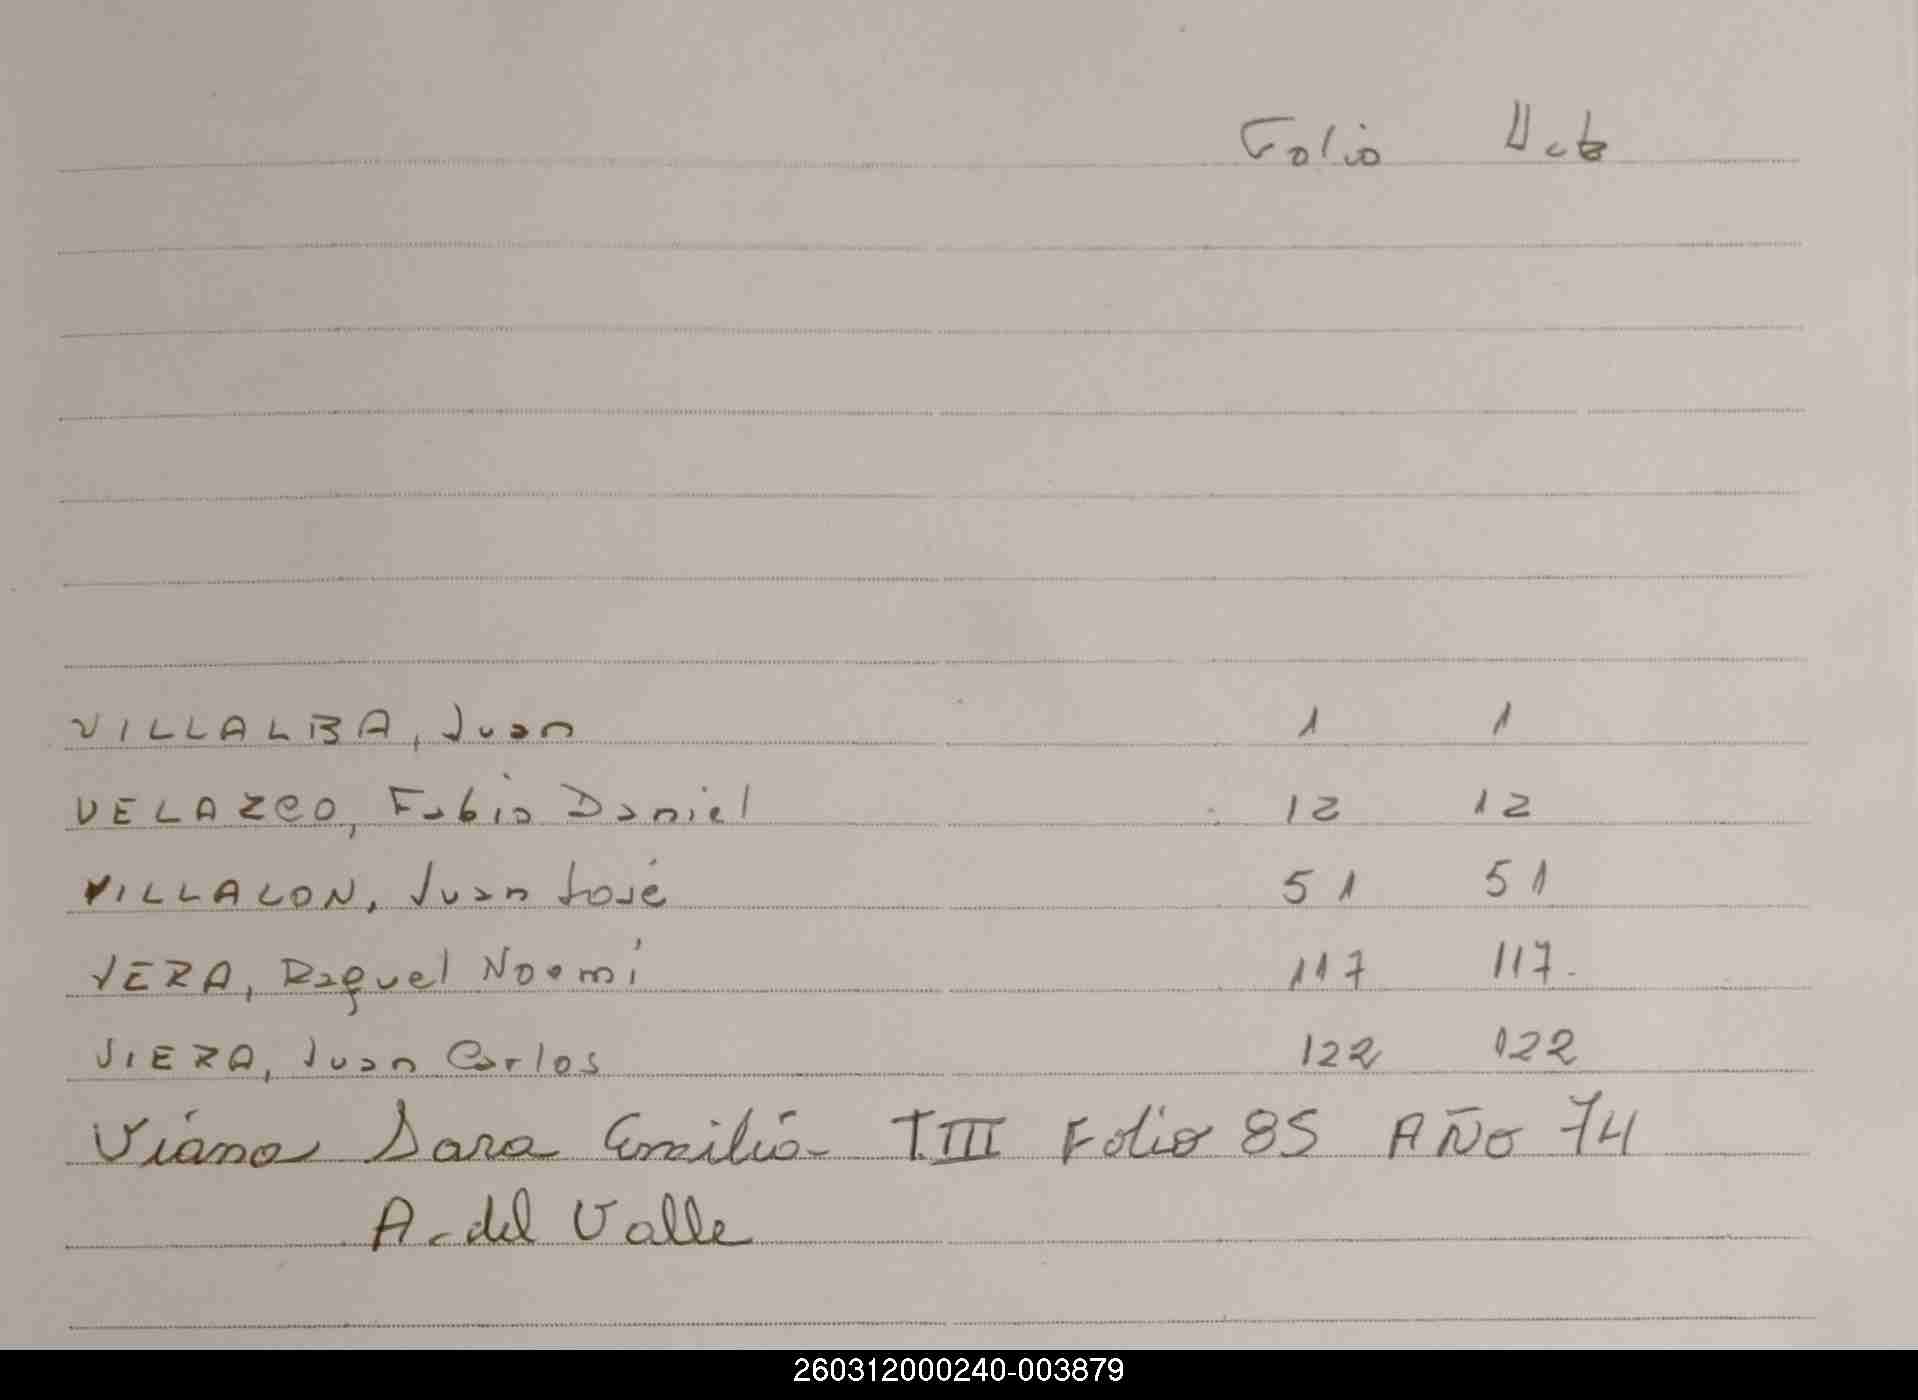 Folio Acta
VILLALBA, Juan 1 1
VELAZCO, Fabio Daniel 12 12
VILLALON, Juan José 51 51
VERA, Raquel Noemí 117 117.
VIERA, Juan Carlos 122 122
Viana Sara Emilia- T.III Folio 85 AÑO 74
A. del Valle
260312000240-003879